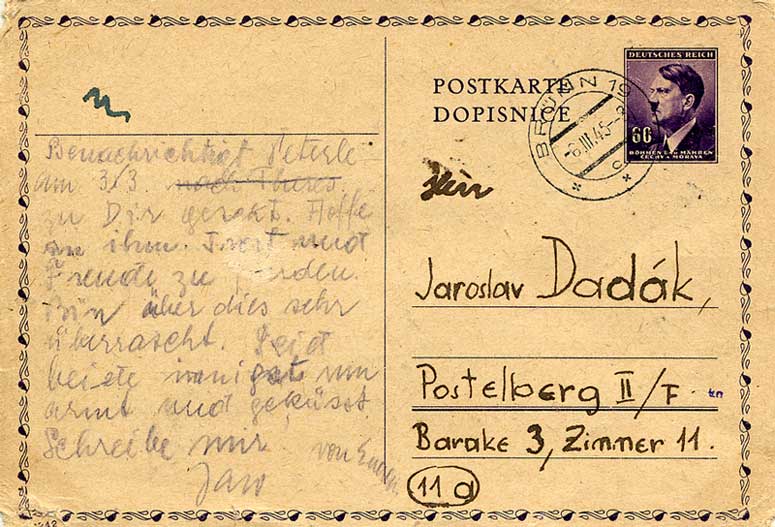 POSTKARTE
DOPISNICE
DEUTSCHES REICH
60
BÖHMEN u. MÄHREN
ČECHY a MORAVA
BRÜNN 10
-6.III.45-
c
Benachrichtigt
am 3/3. nach
zu Dir gereist. Hoffe
in ihm Trost und
Freude zu finden.
Bin über dies sehr
überrascht. Seid
beide innigst um
armt und geküsst
Schreibe mir
von
Herr
Jaroslav Dadák,
Postelberg II/F.
Barake 3, Zimmer 11.
11a